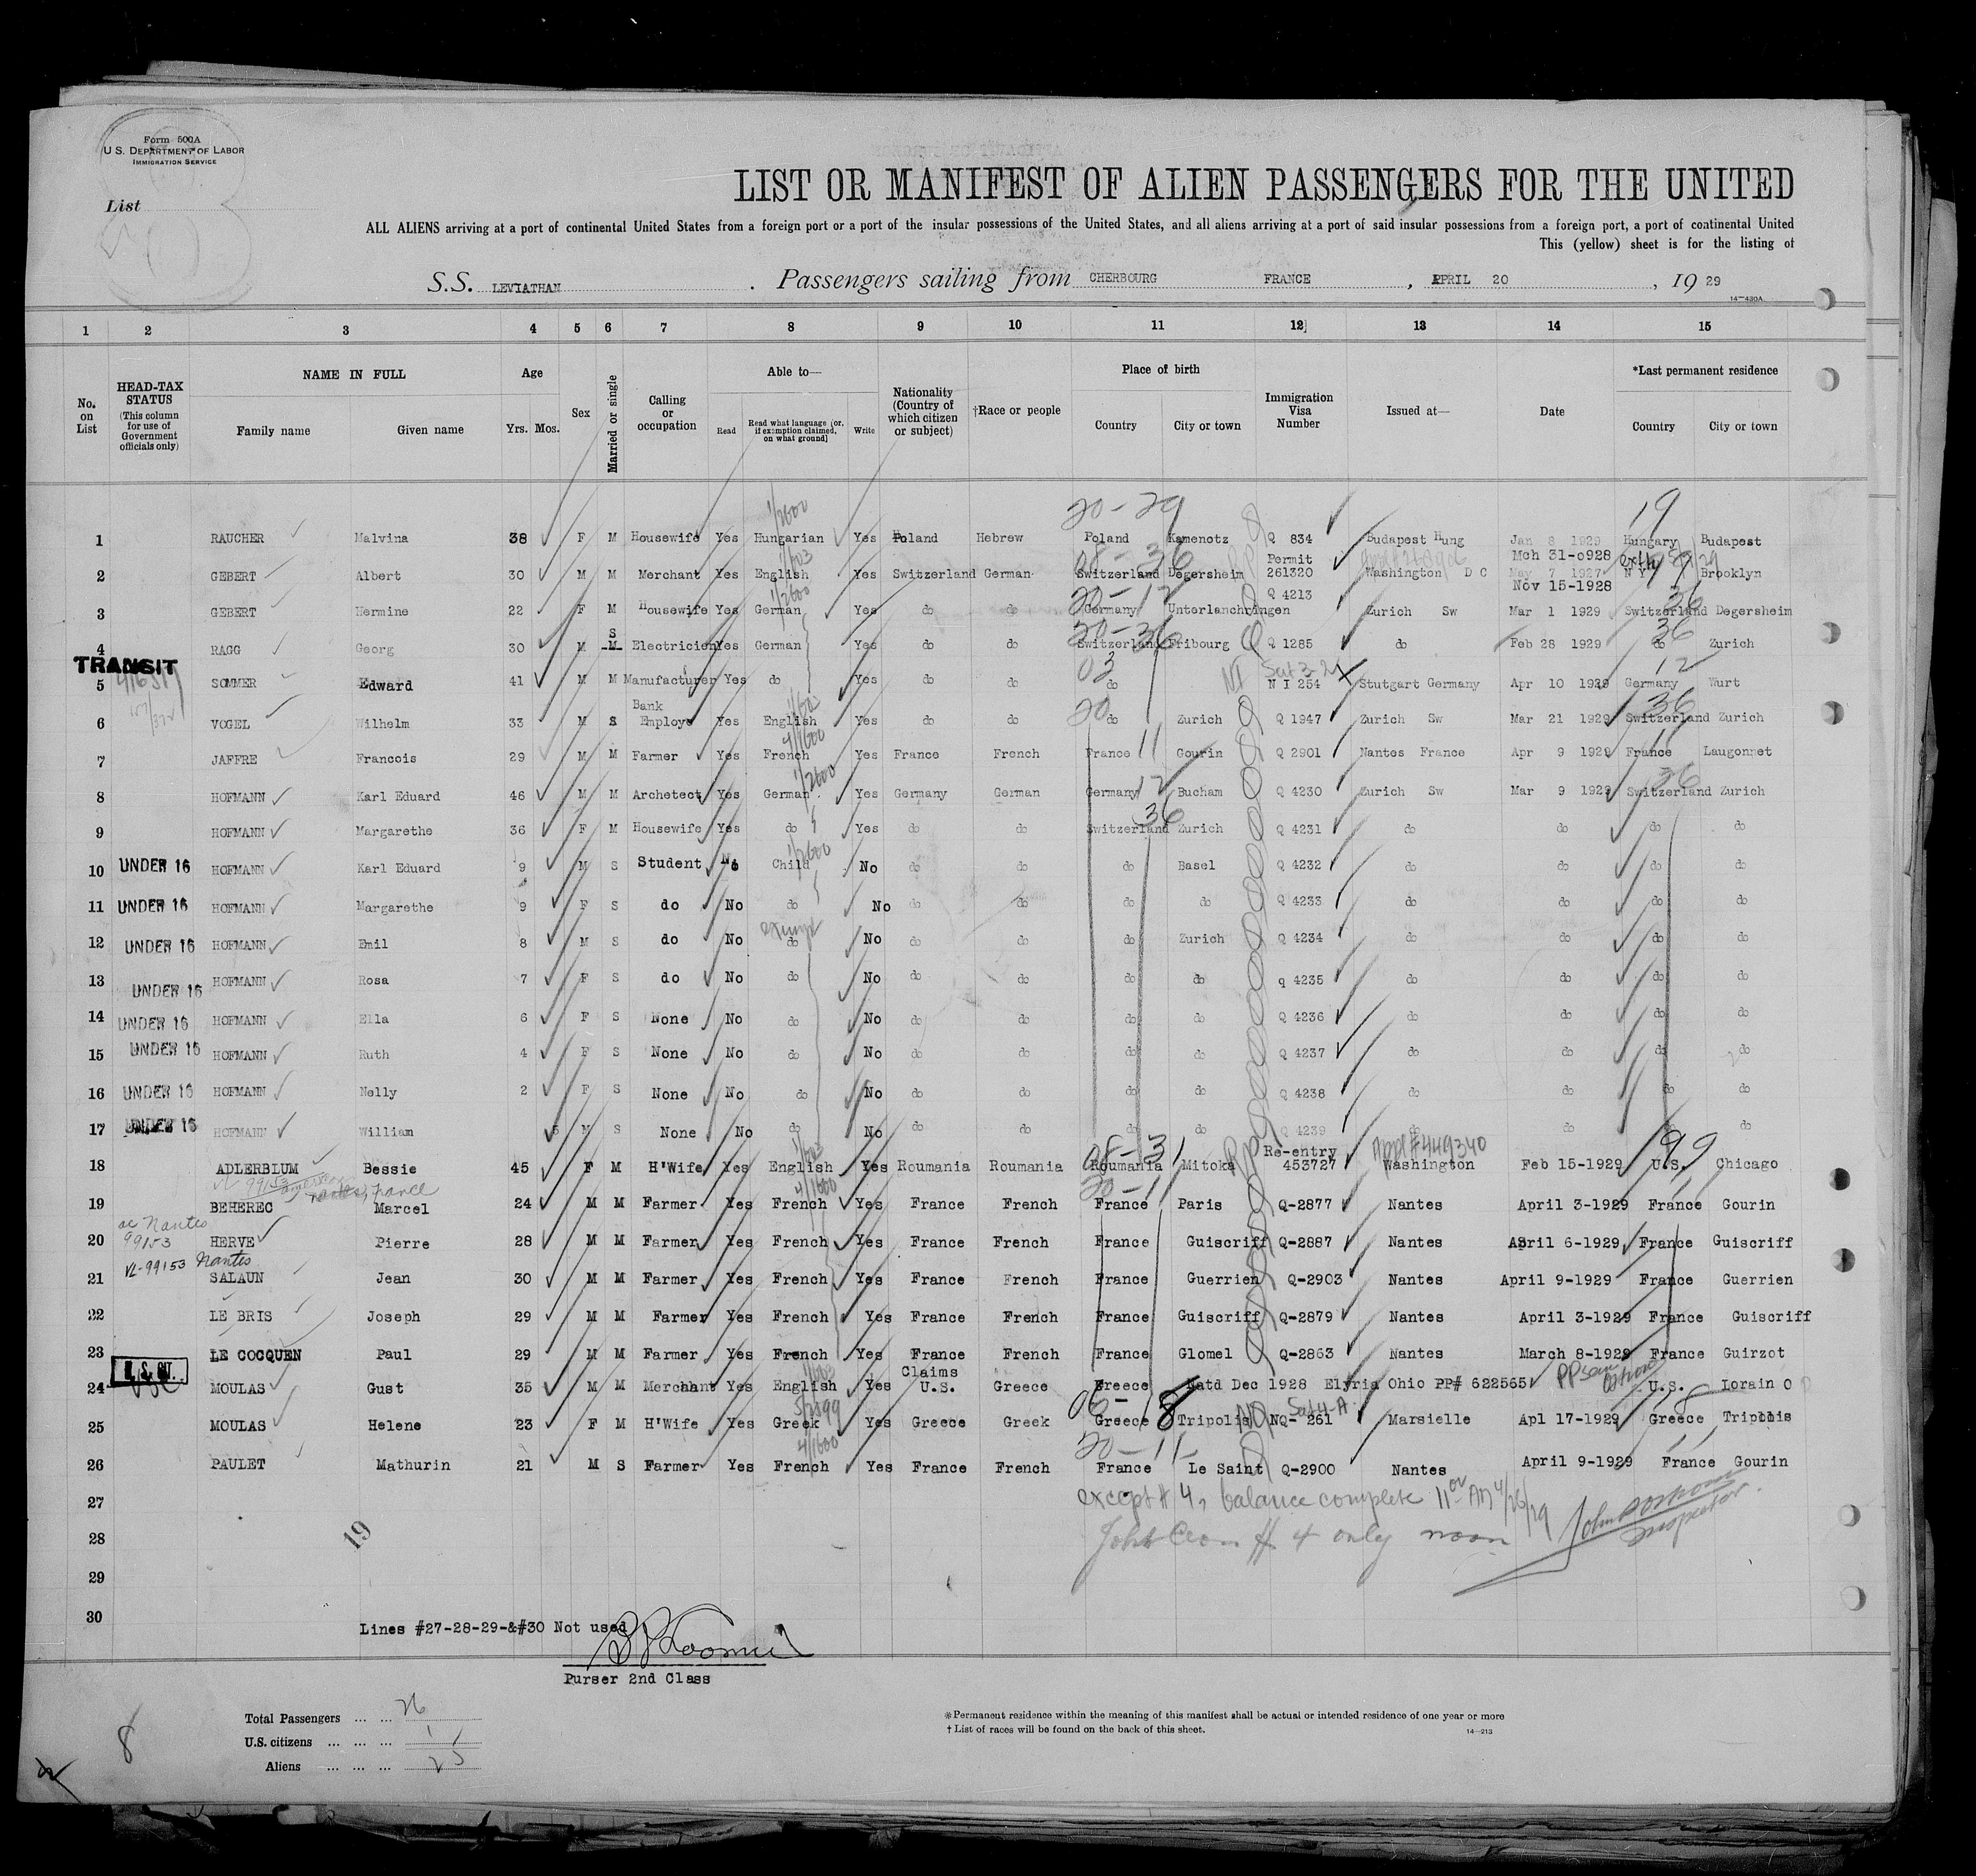 Form 500A
U. S. DEPARTMENT OF LABOR
IMMIGRATION SERVICE
List
LIST OR MANIFEST OF ALIEN PASSENGERS FOR THE UNITED
ALL ALIENS arriving at a port of continental United States from a foreign port or a port of the insular possessions of the United States, and all aliens arriving at a port of said insular possessions from a foreign port, a port of continental United
This (yellow) sheet is for the listing of
S.S. LEVIATHAN . Passengers sailing from CHERBOURG FRANCE , APRIL 20 , 19 29
14—430A
1 2 3 4 5 6 7 8 9 10 11 12] 13 14 15
No. on List
HEAD-TAX STATUS (This column for use of Government officials only)
NAME IN FULL
Family name Given name
Age
Yrs. Mos.
Sex
Married or single
Calling or occupation
Able to—
Read
Read what language [or, if exemption claimed, on what ground]
Write
Nationality (Country of which citizen or subject)
†Race or people
Place of birth
Country City or town
Immigration Visa Number
Issued at—
Date
*Last permanent residence
Country City or town
20-29 19
1 RAUCHER Malvina 38 F M Housewife Yes Hungarian Yes Poland Hebrew Poland Kamenotz Q 834 Budapest Hung Jan 8 1929 Hungary Budapest
08-36 Permit Mch 31-0928
2 GEBERT Albert 30 M M Merchant Yes English Yes Switzerland German Switzerland Degersheim 261320 Washington D C May 7 1927 N Y Brooklyn
Q 4213 Nov 15-1928
3 GEBERT Hermine 22 F M Housewife Yes German Yes do do Germany Unterlanchringen Zurich Sw Mar 1 1929 Switzerland Degersheim
20-36 S 36
4 RAGG Georg 30 M M Electricien Yes German Yes do do Switzerland Fribourg Q 1285 do Feb 28 1929 do Zurich
TRANSIT 03 NI 12
5 SOMMER Edward 41 M M Manufacturer Yes do Yes do do do N I 254 Stutgart Germany Apr 10 1929 Germany Wurt
Bank 20 36
6 VOGEL Wilhelm 33 M S Employe Yes English Yes do do do Zurich Q 1947 Zurich Sw Mar 21 1929 Switzerland Zurich
7 JAFFRE Francois 29 M M Farmer Yes French Yes France French France 11 Gourin Q 2901 Nantes France Apr 9 1929 France Laugonnet
8 HOFMANN Karl Eduard 46 M M Archetect Yes German Yes Germany German Germany 12 Bucham Q 4230 Zurich Sw Mar 9 1929 Switzerland Zurich
36
9 HOFMANN Margarethe 36 F M Housewife Yes do Yes do do Switzerland Zurich Q 4231 do do do do
10 UNDER 16 HOFMANN Karl Eduard 9 M S Student No Child No do do do Basel Q 4232 do do do do
11 UNDER 16 HOFMANN Margarethe 9 F S do No do No do do do do Q 4233 do do do do
exempt
12 UNDER 16 HOFMANN Emil 8 M S do No do No do do do Zurich Q 4234 do do do do
13 UNDER 16 HOFMANN Rosa 7 F S do No do No do do do do q 4235 do do do do
14 UNDER 16 HOFMANN Ella 6 F S None No do No do do do do Q 4236 do do do do
15 UNDER 16 HOFMANN Ruth 4 F S None No do No do do do do Q 4237 do do do do
16 UNDER 16 HOFMANN Nelly 2 F S None No do No do do do do Q 4238 do do do do
17 UNDER 16 HOFMANN William 6 M S None No do No do do do do Q 4239 do do do do
08-31 Re-entry Appl #449340 99
18 ADLERBLUM Bessie 45 F M H'Wife Yes English Yes Roumania Roumania Roumania Mitoka 453727 Washington Feb 15-1929 U.S. Chicago
20-11
19 BEHEREC Marcel 24 M M Farmer Yes French Yes France French France Paris Q-2877 Nantes April 3-1929 France Gourin
ac Nantes
99153
20 HERVE Pierre 28 M M Farmer Yes French Yes France French France Guiscriff Q-2887 Nantes April 6-1929 France Guiscriff
VL-99153 Nantes
21 SALAUN Jean 30 M M Farmer Yes French Yes France French France Guerrien Q-2903 Nantes April 9-1929 France Guerrien
22 LE BRIS Joseph 29 M M Farmer Yes French Yes France French France Guiscriff Q-2879 Nantes April 3-1929 France Guiscriff
23 LE COCQUEN Paul 29 M M Farmer Yes French Yes France French France Glomel Q-2863 Nantes March 8-1929 France Guirzot
U. S. CIT. Claims
24 MOULAS Gust 35 M M Merchant Yes English Yes U.S. Greece Greece Natd Dec 1928 Elyria Ohio PP# 622565 U.S. Lorain O
25 MOULAS Helene 23 F M H'Wife Yes Greek Yes Greece Greek Greece Tripolis NQ- 261 Marsielle Apl 17-1929 Greece Tripolis
20-11
26 PAULET Mathurin 21 M S Farmer Yes French Yes France French France Le Saint Q-2900 Nantes April 9-1929 France Gourin
27 except # 4, balance complete 11 00 AM 4/26/29
28 # 4 only noon
Inspector
19
29
30
Lines #27-28-29-&#30 Not used
Purser 2nd Class
Total Passengers ... ... 26
U.S. citizens ... ... ... 1
Aliens ... ... ... 25
8
*Permanent residence within the meaning of this manifest shall be actual or intended residence of one year or more
† List of races will be found on the back of this sheet.
14—213